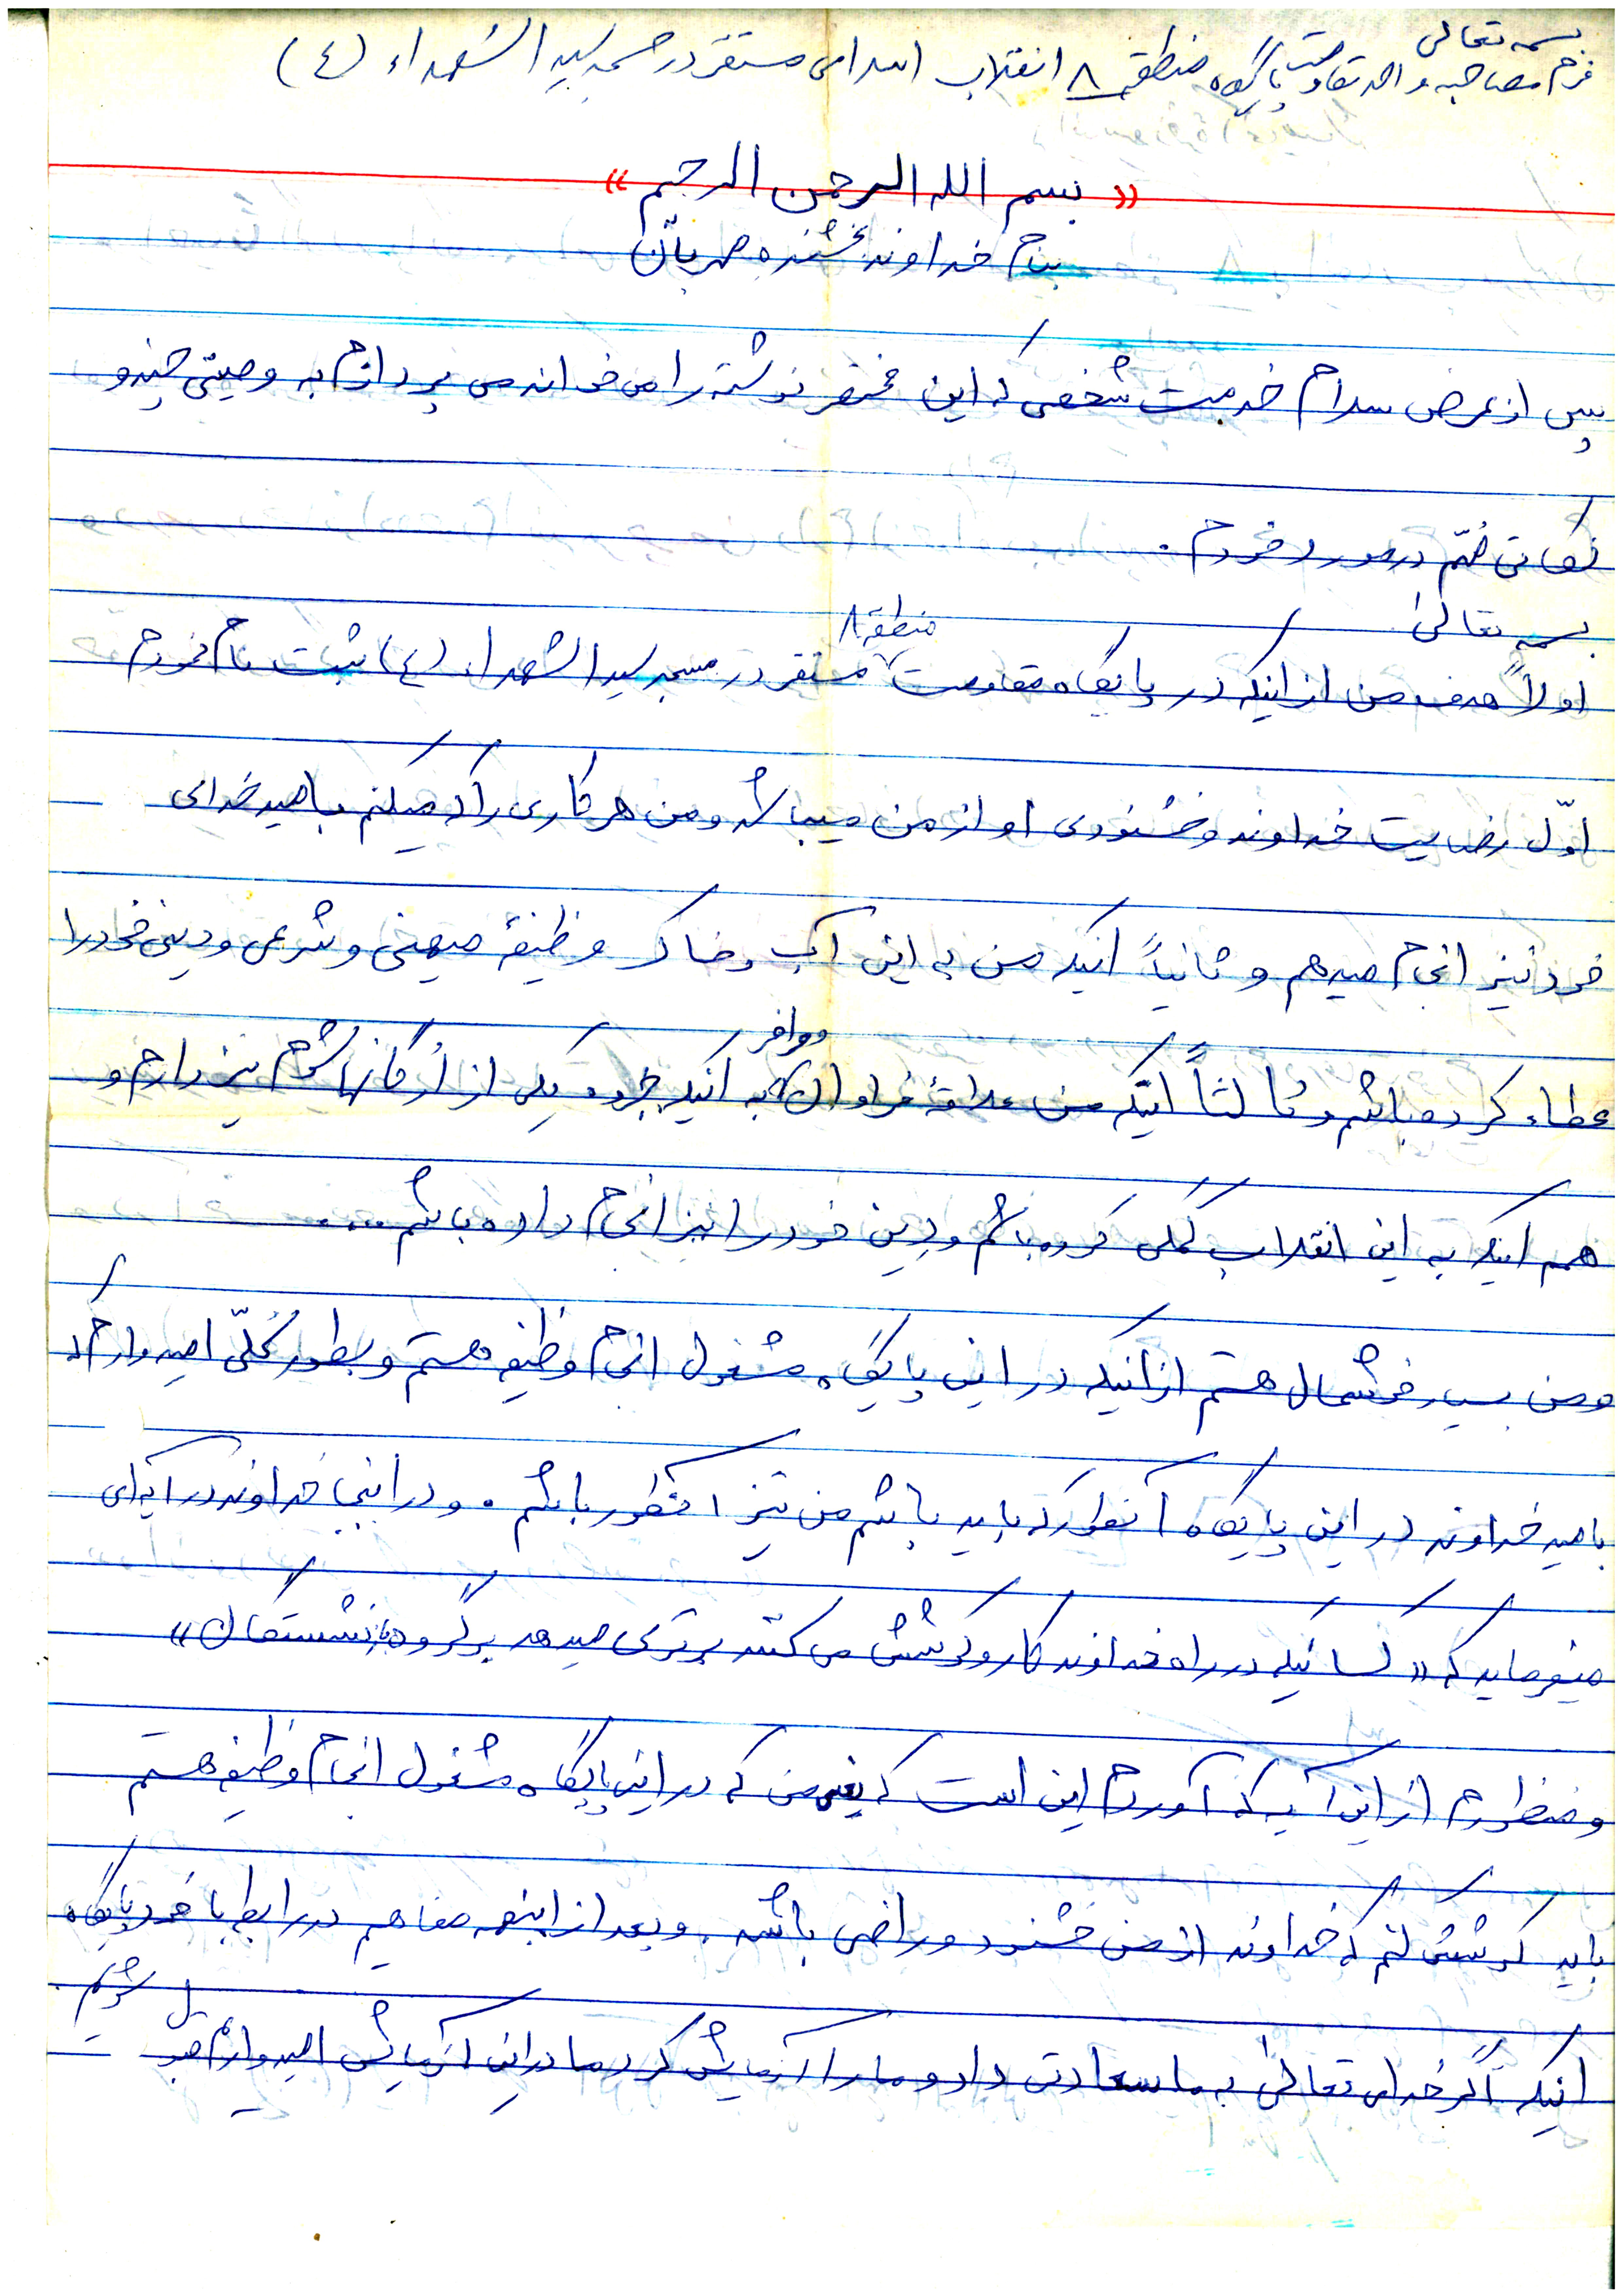 بسمه تعالی
فرم مصاحبه واحد مقاومت پایگاه منطقه ۸ انقلاب اسلامی مستقر در مسجد سید الشهداء (ع)
« بسم الله الرحمن الرحیم »
بنام خداوند بخشنده مهربان
پس از عرض سلام خدمت شخصی که این مختصر نوشته را می خواند می پردازم به وصیتی چند و
نکاتی مهّم در مورد خودم .
بسمه تعالیٰ
اولاً هدف من از اینکه در پایگاه مقاومت منطقه ۸ مستقر در مسجد سید الشهداء (ع) ثبت نام نمودم
اوّل رضایت خداوند و خشنودی او از من میباشد و من هر کاری را که میکنم بامید خدای
خود نیز انجام میدهم و ثانیاً اینکه من به این آب و خاک وظیفهٔ میهنی و شرعی و دینی خود را
عطاء کرده باشم و ثالثاً اینکه من علاقهٔ فراوان و وافر به اینکه جزوه یکی از ارگانها شوم نیز دارم و
هم اینکه به این انقلاب کمکی کرده باشم و دین خود را نیز انجام داده باشم ....
و من بسیار خوشحال هستم از اینکه در این پایگاه مشغول انجام وظیفه هستم و بطور کُلّی امیدوارم که
بامید خداوند در این پایگاه آنطور که باید باشم من نیز آنطور باشم . و در اینجا خداوند در آیه ای
میفرماید که « کسانیکه در راه خداوند کار و کوشش می کنند برتری میدهد بر گروه بازنشستگان »
و منظورم از این آیه که آوردم این است که یعنی من که در این پایگاه مشغول انجام وظیفه هستم
باید کوشش کنم که خداوند از من خشنود و راضی باشد . و بعد از اینهمه مفاهیم در رابطه با خود پایگاه
اینکه اگر خدای تعالیٰ به ما سعادتی داد و ما را آزمایش کرد ما در این آزمایش امیدواریم قبول شویم .